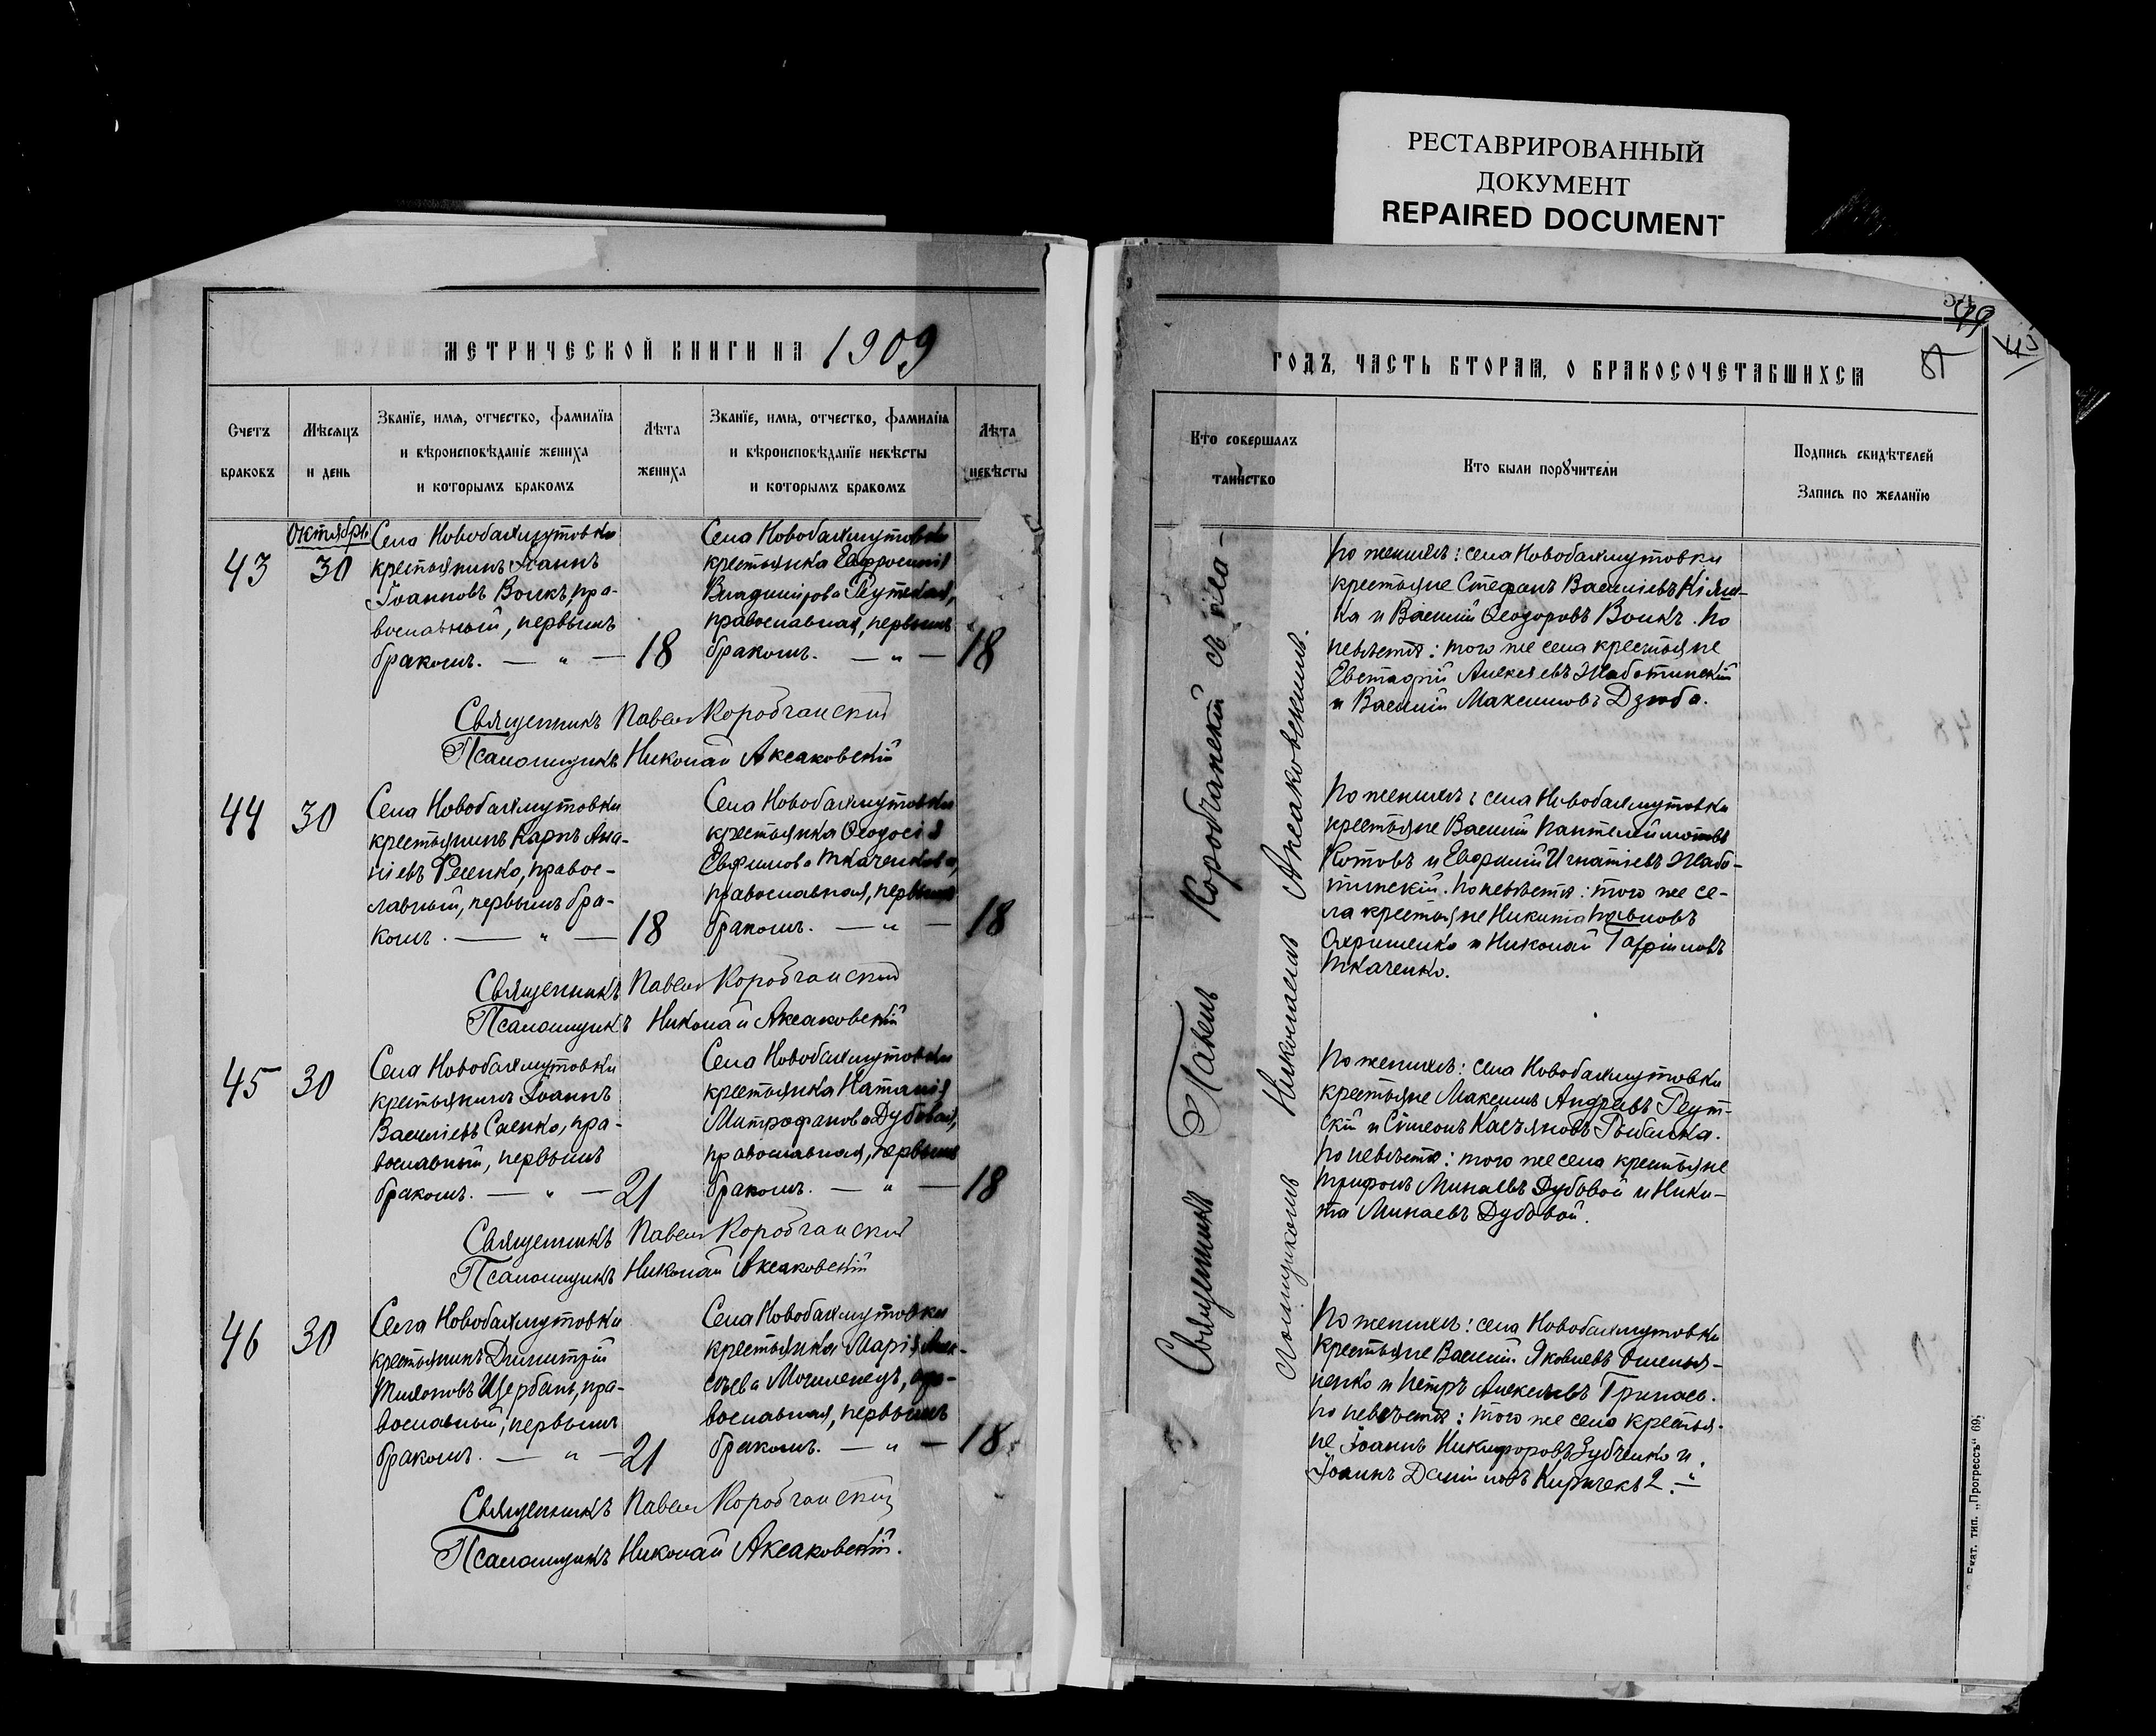 РЕСТАВРИРОВАННЫЙ
ДОКУМЕНТ
REPAIRED DOCUMENT
МЕТРИЧЕСКОЙ КНИГИ НА 1909
Счетъ
браковъ
Мѣсяцъ
и день
Званіе, имя, отчество, фамилія
и вѣроисповѣданіе жениха
и которымъ бракомъ
Лѣта
жениха
Званіе, имя, отчество, фамилія
и вѣроисповѣданіе невѣсты
и которымъ бракомъ
Лѣта
невѣсты
43
Октябрь
30
Села Новобахмутовки
крестьянинъ Іоаннъ
Іоанновъ Волкъ, пра-
вославный, первымъ
бракомъ. — " —
18
Села Новобахмутовки
крестьянка Евфросинія
Владимірова Реутская,
православная, первымъ
бракомъ. — " —
18
Священникъ Павелъ Коробчанскій
Псаломщикъ Николай Аксаковскій
44
30
Села Новобахмутовки
крестьянинъ Карпъ Ана-
ніевъ Фесенко, правос-
лавный, первымъ бра-
комъ. — " —
18
Села Новобахмутовки
крестьянка Ѳеодосія
Евфимова Ткаченкова,
православная, первымъ
бракомъ. — " —
18
Священникъ Павелъ Коробчанскій
Псаломщикъ Николай Аксаковскій
45
30
Села Новобахмутовки
крестьянинъ Іоаннъ
Василіевъ Саенко, пра-
вославный, первымъ
бракомъ. — " —
21
Села Новобахмутовки
крестьянка Наталія
Митрофанова Дубовая,
православная, первымъ
бракомъ. — " —
18
Священникъ Павелъ Коробчанскій
Псаломщикъ Николай Аксаковскій
46
30
Села Новобахмутовки
крестьянинъ Димитрій
Тихоновъ Щербань, пра-
вославный, первымъ
бракомъ. — " —
21
Села Новобахмутовки
крестьянка Марія Алек-
сѣева Могилевецъ, пра-
вославная, первымъ
бракомъ. — " —
18
Священникъ Павелъ Коробчанскій
Псаломщикъ Николай Аксаковскій.
ГОДЪ, ЧАСТЬ ВТОРАЯ, О БРАКОСОЧЕТАВШИХСЯ
Кто совершалъ
таинство
Кто были порꙋчители
Подпись свидѣтелей
Запись по желанію
Священникъ Павелъ Коробчанскій съ пса-
ломщикомъ Николаемъ Аксаковскимъ.
По женихѣ: села Новобахмутовки
крестьяне Стефанъ Василіевъ
и Василій Ѳеодоровъ Волкъ. По
невѣстѣ: того же села крестьяне
Евстафій Алексѣевъ Жаботинскій
и Василій Максимовъ Дзюба.
По женихѣ: села Новобахмутовки
крестьяне Василій Пантелеймоновъ
Котовъ и Евфимій Игнатіевъ Жабо-
тинскій. По невѣстѣ: того же се-
ла крестьяне Никита Павловъ
Охрименко и Николай
Ткаченко.
По женихѣ: села Новобахмутовки
крестьяне Максимъ Андреевъ Реут-
скій и Сѵмеонъ Касьяновъ Рыбалка.
По невѣстѣ: того же села крестьяне
Трифонъ Минаевъ Дубовой и Ники-
та Минаевъ Дубовой.
По женихѣ: села Новобахмутовки
крестьяне Василій Яковлевъ Омелья-
ненко и Петръ Алексѣевъ
По невѣстѣ: того же села крестья-
не Іоаннъ Никифоровъ Зубченко и
Іоаннъ Даніиловъ Киричекъ 2. —